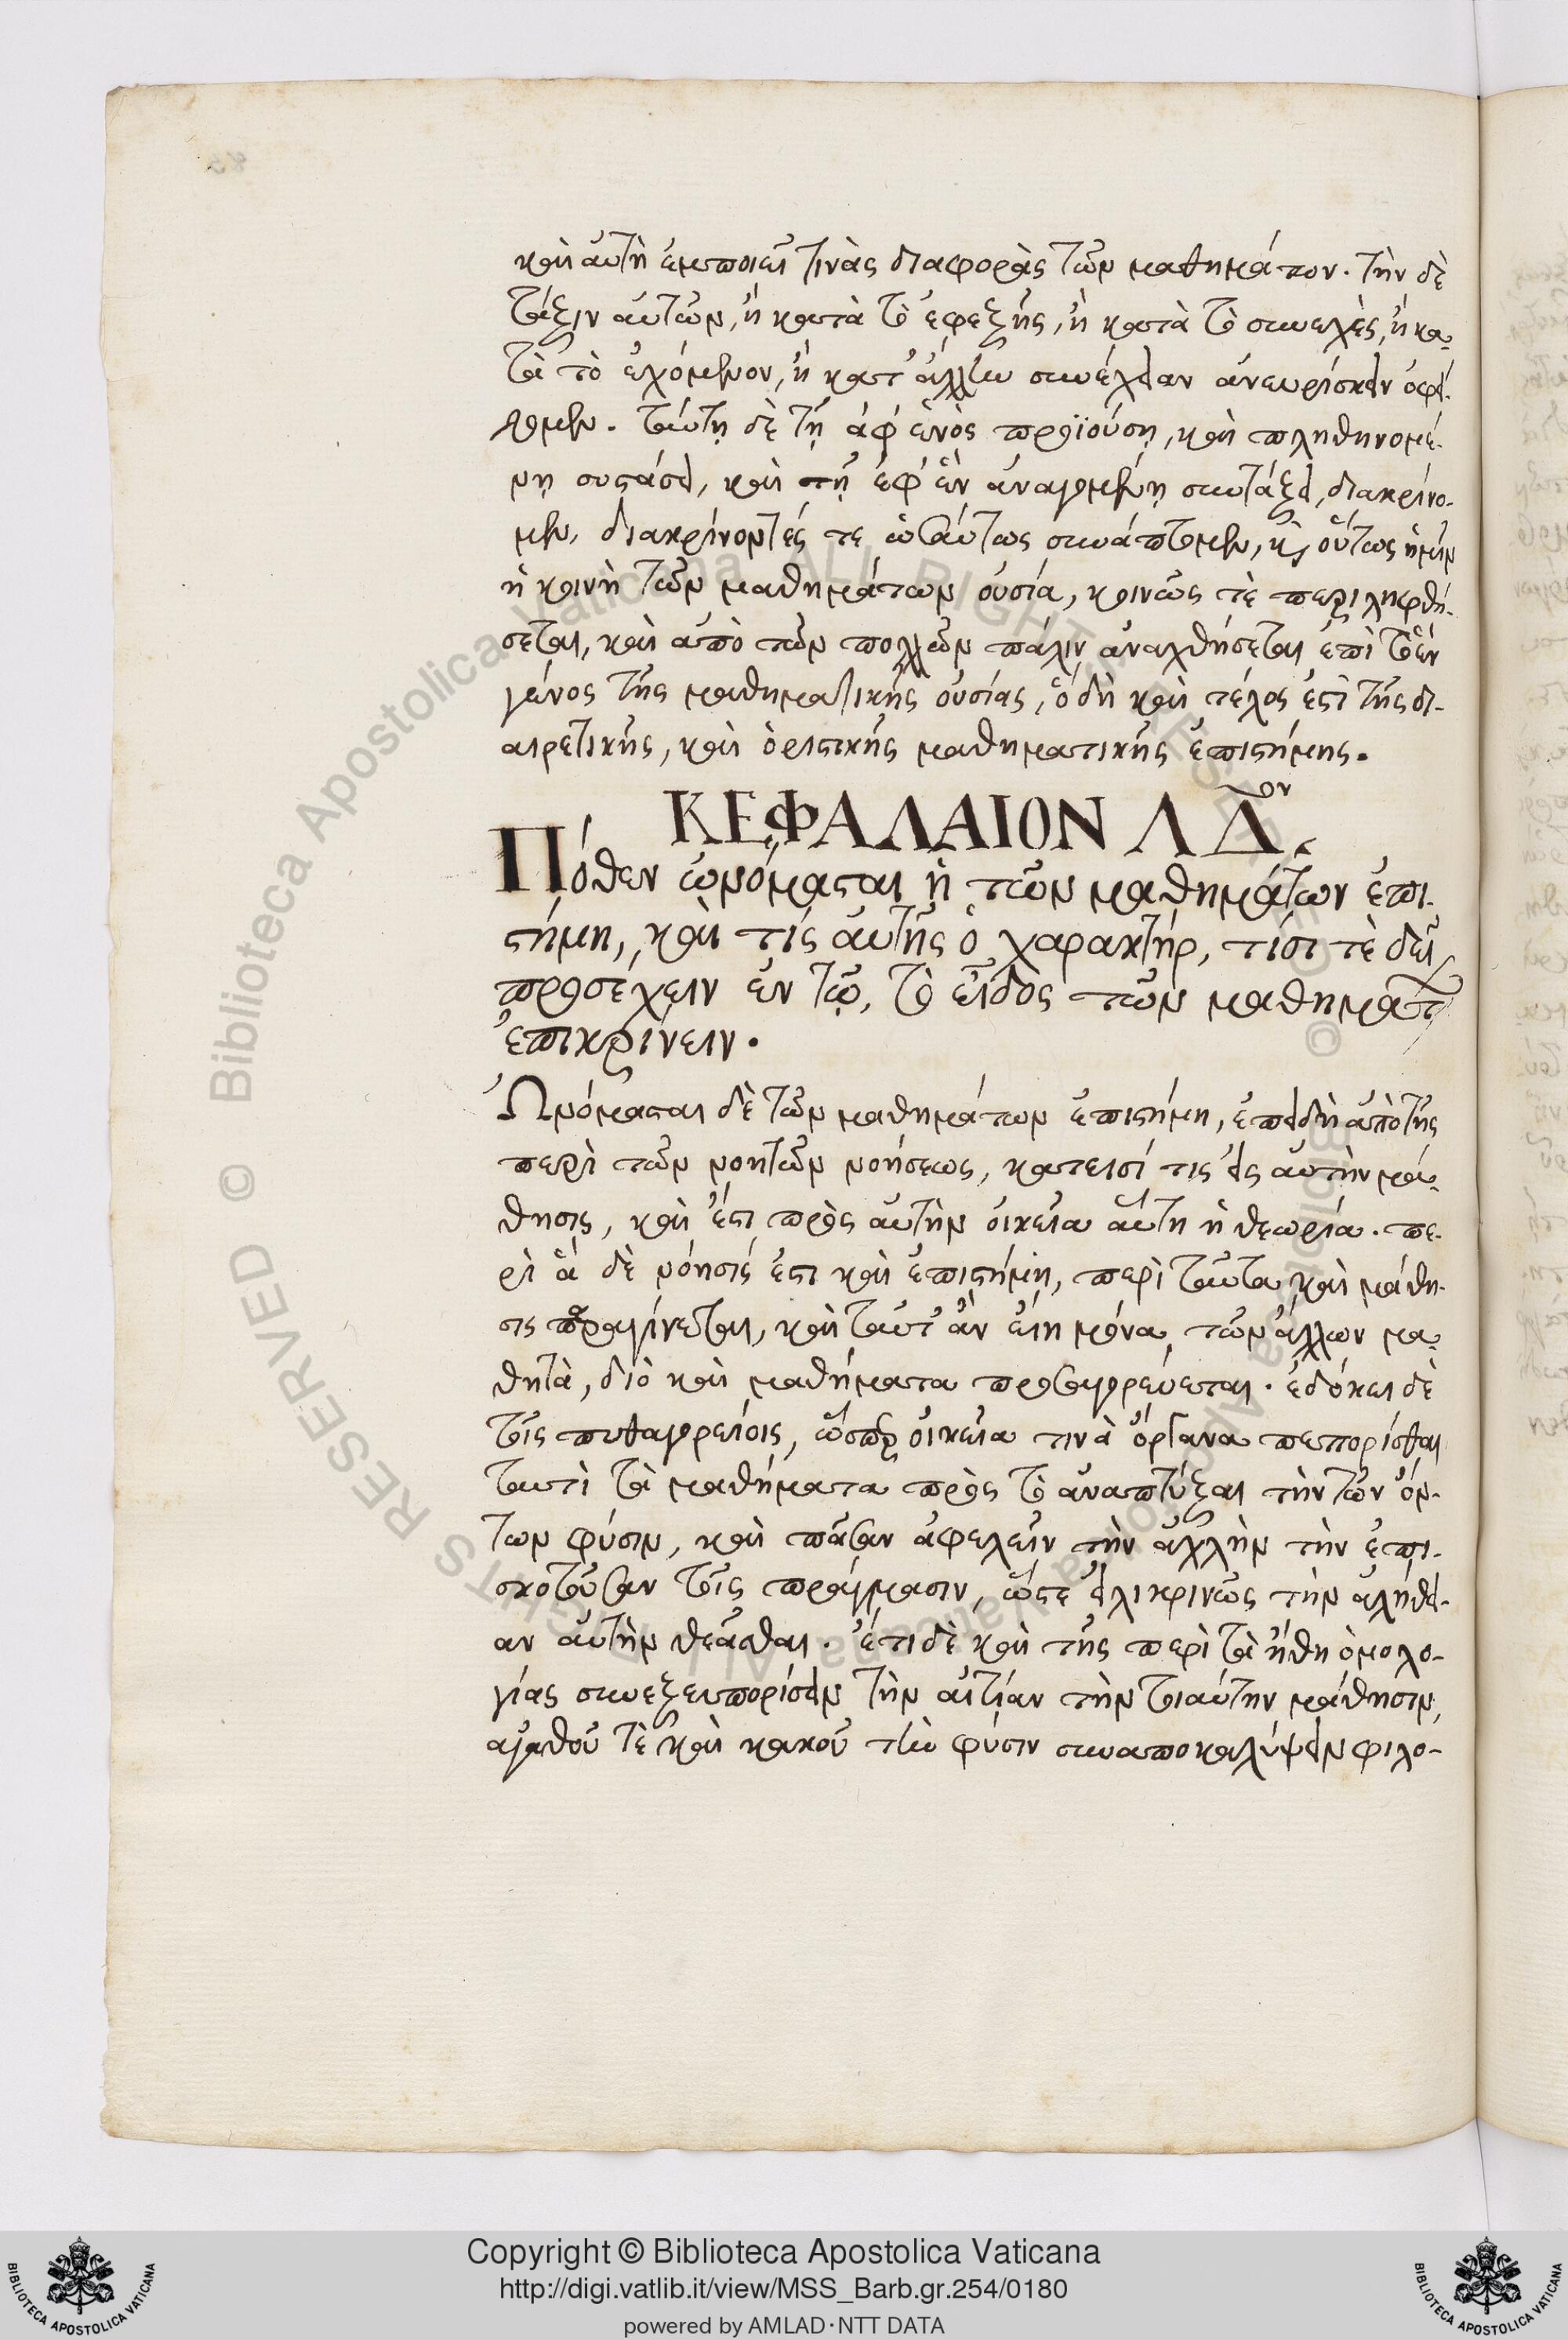 καὶ αὐτὴ ἐμποιεῖ τινὰς διαφορὰς τῶν μαθημάτων. τὴν δὲ
τάξιν αὐτῶν, ἢ κατὰ τὸ ἐφεξῆς, ἢ κατὰ τὸ συνεχὲς, ἢ κα-
τὰ τὸ ἐχόμενον, ἢ κατ' ἄλλην συνέχειαν ἀνευρίσκειν ὀφεί-
λομεν. ταύτῃ δὲ τῇ ἀφ' ἑνὸς προϊούσῃ, καὶ πληθηνομέ-
νῃ συστάσει, καὶ τῇ ἐφ' ἓν ἀναγομένῃ συντάξει, διακρίνο-
μεν, διακρίνοντές τε ὡσαύτως συνάπτομεν, κ οὕτως ἡμῖν
ἡ κοινὴ τῶν μαθημάτων οὐσία, κοινῶς τὲ περιληφθή-
σεται, καὶ ἀπὸ τῶν πολλῶν πάλιν ἀναχθήσεται ἐπὶ τὸ ἓν
γένος τῆς μαθηματικῆς οὐσίας, ὃ δὴ καὶ τέλος ἐστὶ τῆς δι-
αιρετικῆς, καὶ ὁριστικῆς μαθηματικῆς ἐπιστήμης.
ΚΕΦΑΛΑΙΟΝ ΛΔον.
Πόθεν ὠνόμασται ἡ τῶν μαθημάτων ἐπι-
στήμη, καὶ τίς αὐτῆς ὁ χαρακτὴρ, τίσι τὲ δεῖ
προσέχειν ἐν τῷ, τὸ εἶδος τῶν μαθηματ
ἐπικρίνειν.
Ὠνόμασται δὲ τῶν μαθημάτων ἐπιστήμη, ἐπειδὴ ἀπὸ τῆς
περὶ τῶν νοητῶν νοήσεως, κατεισί τις εἰς αὐτὴν μά-
θησις, καὶ ἔστι πρὸς αὐτὴν οἰκεῖα αὕτη ἡ θεωρία. πε-
ρὶ ἃ δὲ νόησίς ἐστι καὶ ἐπιστήμη, περὶ ταῦτα καὶ μάθη-
σις παραγίνεται, καὶ ταῦτ' ἂν εἴη μόνα τῶν ἄλλων μα-
θητὰ, διὸ καὶ μαθήματα προσαγορεύεται. ἐδόκει δὲ
τοῖς πυθαγορείοις, ὥσπερ οἰκεῖα τινὰ ὄργανα πεπορίσθαι
ταυτὶ τὰ μαθήματα πρὸς τὸ ἀναπτύξαι τὴν τῶν ὄν-
των φύσιν, καὶ πᾶσαν ἀφελεῖν τὴν ἀχλὴν τὴν ἐπι-
σκοτοῦσαν τοῖς πράγμασιν, ὥστε εἰλικρινῶς τὴν ἀλήθει-
αν αὐτὴν θεᾶσθαι. ἔτι δὲ καὶ τῆς περὶ τὰ ἤθη ὁμολο-
γίας συνεξευπορίσειν τὴν αἰτίαν τὴν τοιαύτην μάθησιν,
ἀγαθοῦ τὲ καὶ κακοῦ τὴν φύσιν συναποκαλύψειν φιλο-